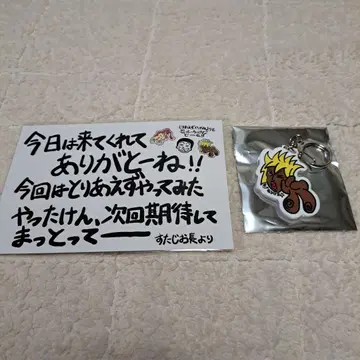 今日は来てくれて
ありがとーね!!
今回はとりあえずやってみた
やったけん、次回期待して
まっとってー
すたじお長より